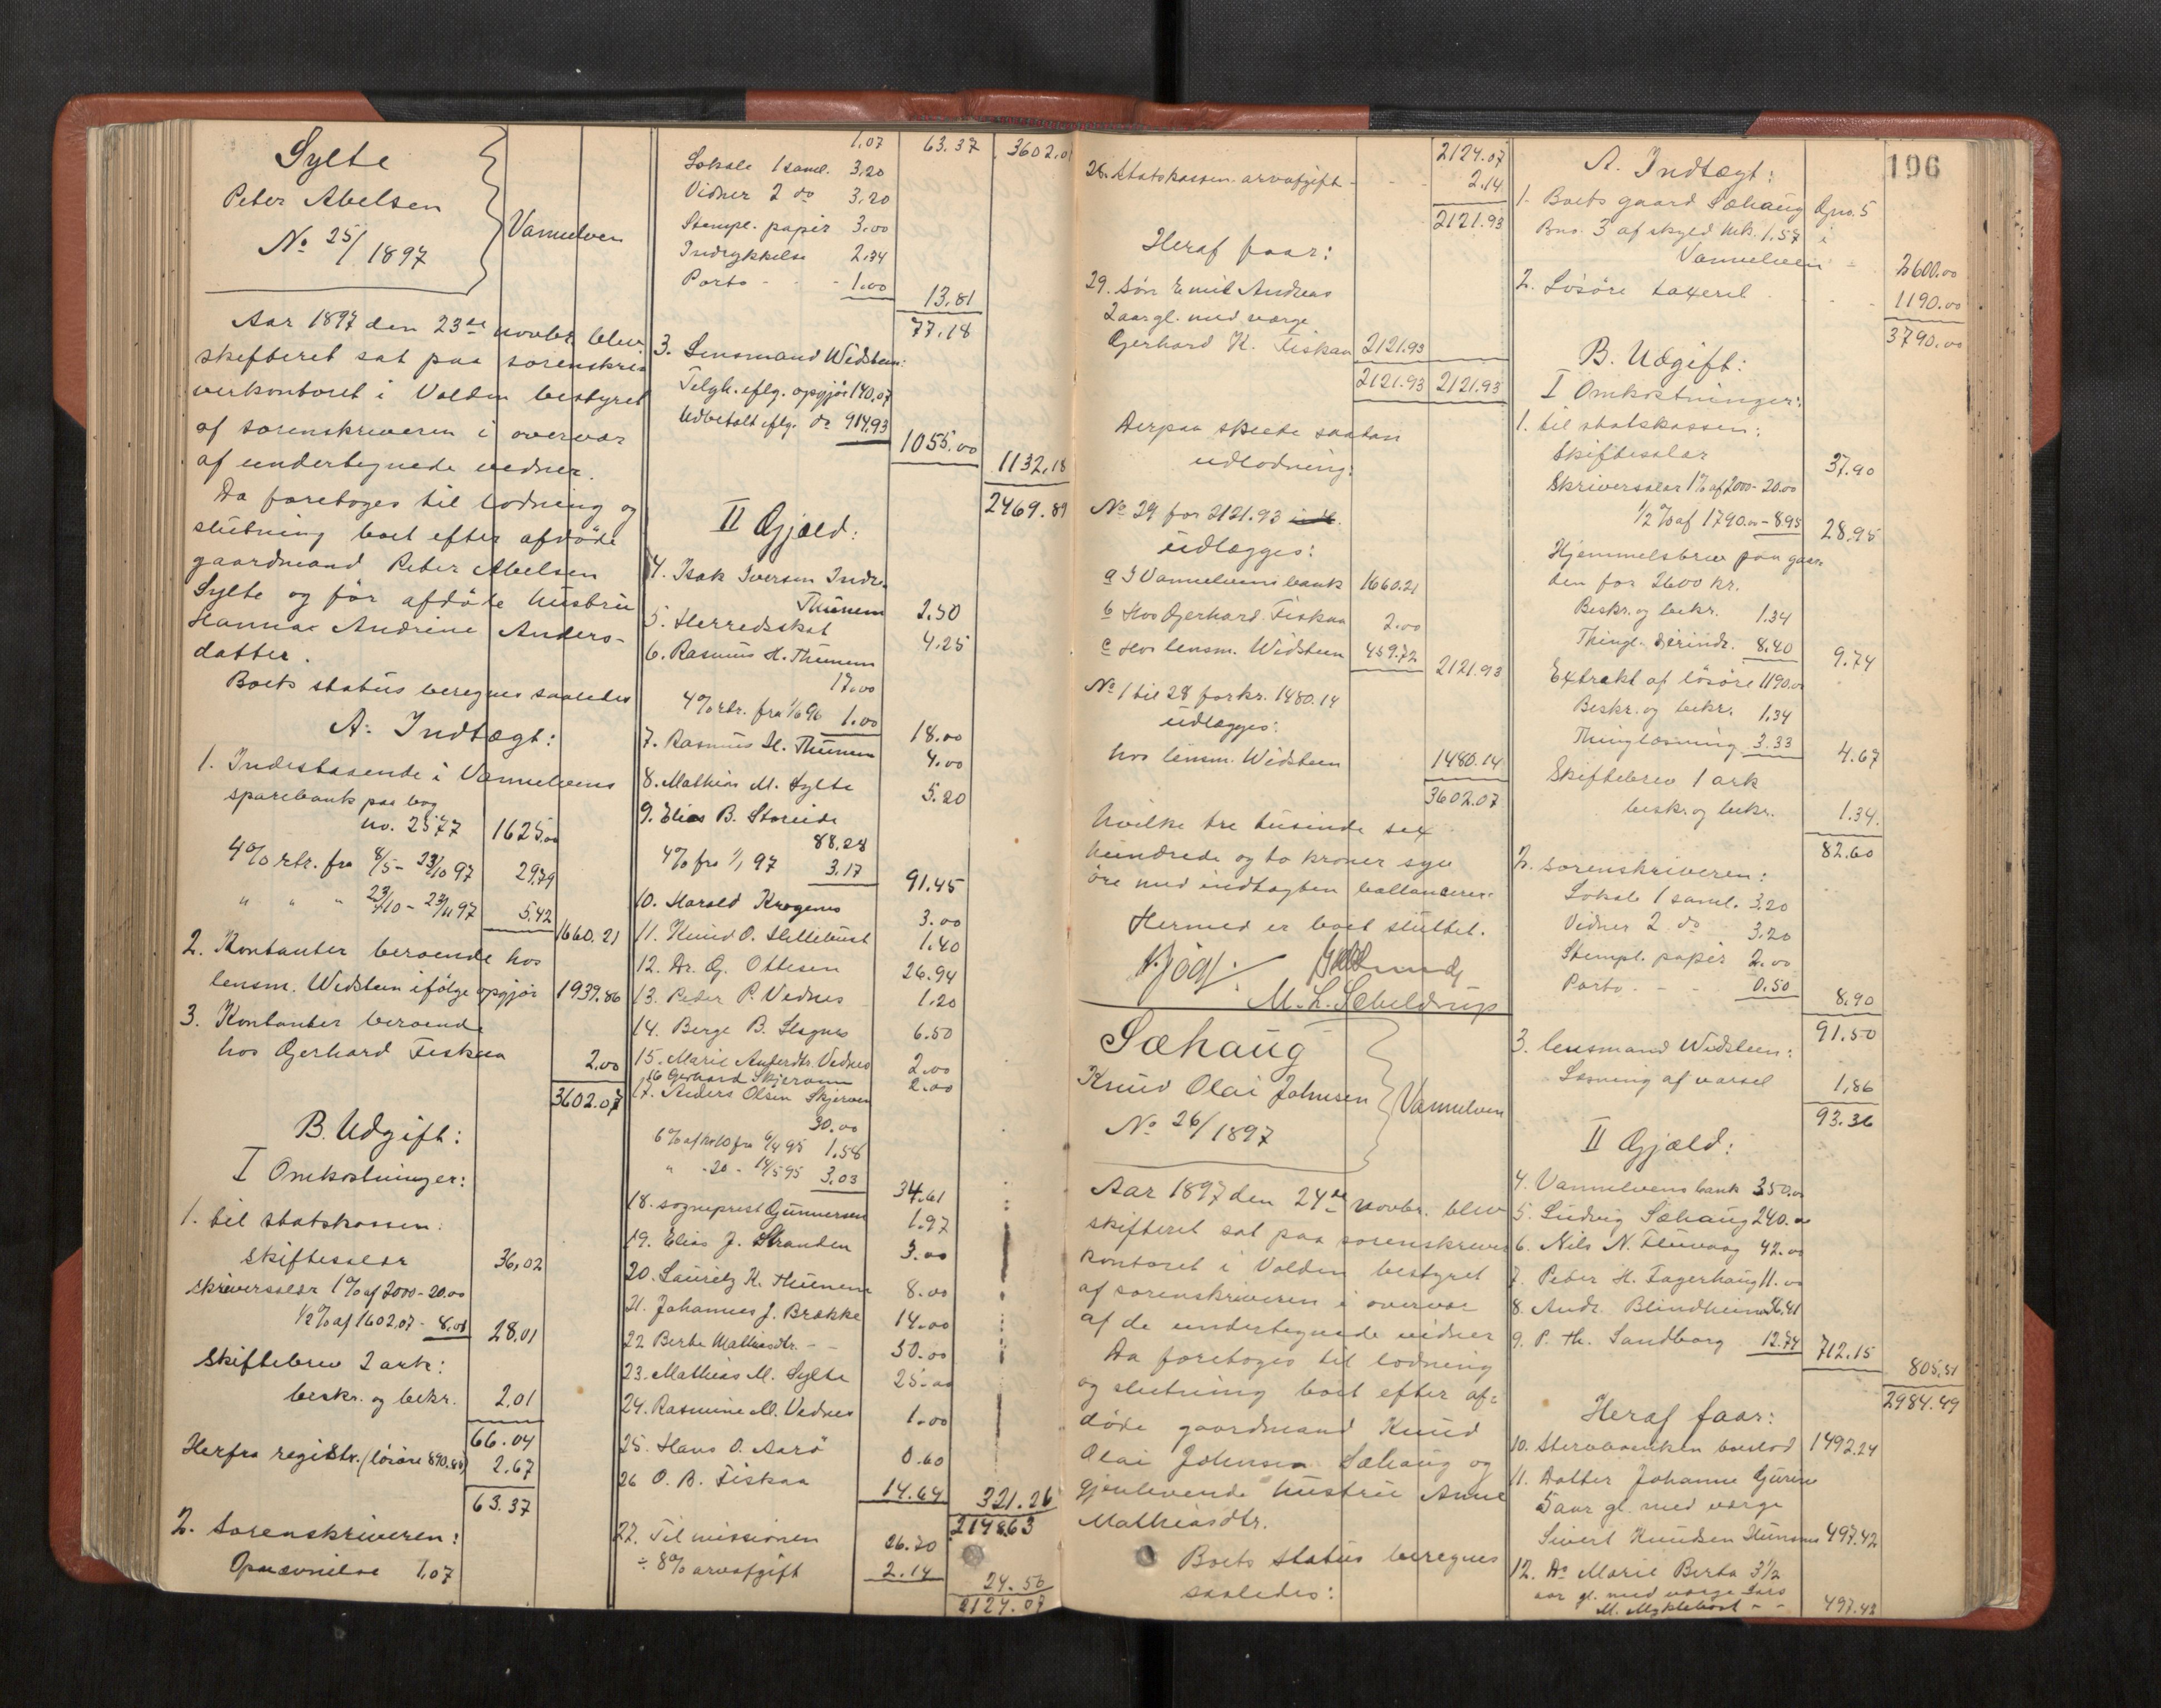 Sylte
Peter Abelsen
No 25/1897
Vannelven
Aar 1897 den 23de novbr. blev
skifteret sat paa sorenskri-
verkontoret i Volden bestyret
af sorenskriveren i overvær
af undertegnede vidner.
Da foretoges til lodning og
slutning boet efter afdøde
gaardmand Peter Abelsen
Sylte og før afdøde hustru
Hanna Andrine Anders-
datter.
Boets status beregnes saaledes
A. Indtægt:
1. Indestaaende i Vannelvens
sparebank paa bog
no. 2577 1625.00
4% rtr. fra 8/5 - 23/10 97 29.79
" " " 23/10 - 23/11 97 5.42
1660.21
2. Kontanter beroende hos
lensm. Widsteen ifølge opgjør 1939.86
3. Kontanter beroende
hos Gjerhard Fiskaa 2.00
3602.07
B. Udgift:
I Omkostninger:
1. til statskassen:
Skiftesalær 36,02
skriversalær 1% af 2000 - 20.00
1/2% af 1602.07 - 8.01 28.01
Skiftebrev 2 ark:
beskr. og bekr. 2.01
66.04
Herfra registr. (løsøre 890.80) 2.67
63.37
2. Sorenskriveren:
Opnævnelse 1,07
1,07 63.37 3602.07
Lokale 1 saml. 3.20
Vidner 2 do 3.20
Stempl. papir 3.00
Indrykkelse 2.34
Porto - - 1.00
13.81
77.18
3. Lensmand Widsteen:
Tilgh. eflg. opgjør 140.07
Udbetalt eflg. do 914.93
1055.00
1132.18
2469.89
II Gjæld:
4. Isak Iversen Indr.
Thunem 2.50
5. Herredsskat 4.25
6. Rasmus H. Thunem
17.00
4% rtr. fra 1/6 96 1.00 18.00
7. Rasmus H. Thunem 4.00
8. Mathias M. Sylte 5.20
9. Elias B. Storeide
88.28
4% fra 1/1 97 3.17 91.45
10. Harald Krogenes 3.00
11. Knud O. Hellebust 1.40
12. Dr. G. Ottesen 26.94
13. Peder P. Vednes 1.20
14. Berge B. Slagnes 6.50
15. Marie Andersdtr. Vednes 2.00
16 Gerhard Skjervem 2.00
17. Anders Olsen Skjerven
30.00
6% af kr. 10 fra 6/4 95 1.58
" - 20 - 14/5 95 3.03 34.61
18. sogneprest Gunnersen 1.97
19. Elias J. Stranden 3.00
20. Lauritz K. Thunem 8.00
21. Johannes J. Brække 14.00
22 Berte Mathiasdtr. - - 50.00
23. Mathias M. Sylte 25.00
24. Rasmine M. Vednes 1.00
25. Hans O. Aarø 0.60
26 O. B. Fiskaa 14.64 321.26
2148.63
27. Til missionen 26.70
÷ 8% arvafgift 2.14 24.56
2124.07
2124.07
28. Statskassen arvafgift - - 2.14
2121.93
Heraf faar:
29. Søn Emil Andreas
2 aar gl. med værge
Gjerhard K. Fiskaa 2121.93
2121.93 2121.93
Derpaa skeete saadan
udlodning:
No 29 for 2121.93
udlægges:
a I Vannelvens bank 1660.21
b Hos Gjerhard Fiskaa 2.00
c Hos lensm. Widsteen 459.72 2121.93
No 1 til 28 for kr. 1480.14
udlægges:
hos lensm. Widsteen 1480.14
3602.07
Hvilke tre tusinde sex
hundrede og to kroner syv
øre med indtægten ballancerer.
Hermed er boet sluttet.
M. L. Scheldrup
Sæhaug
Knud Olai Johnsen
No 26/1897
Vannelven
Aar 1897 den 24de novbr. blev
skifteret sat paa sorenskriver
kontoret i Volden bestyret
af sorenskriveren i overvær
af de undertegnede vidner
Da foretoges til lodning
og slutning boet efter af-
døde gaardmand Knud
Olai Johnsen Sæhaug og
gjenlevende hustru Anne
Mathiasdtr.
Boets status beregnes
saaledes:
196
A. Indtægt:
1. Boets gaard Sæhaug Gno. 5
Bno. 3 af skyld mk. 1.57 i
Vannelven - 2600.00
2. Løsøre taxeret - - - 1190.00
3790.00
B. Udgift:
I Omkostninger:
1. til statskassen:
Skiftesalær 37.90
Skriversalær 1% af 2000 - 20.00
1/2% af 1790.00 - 8.95 28.95
Hjemmelsbrev paa gaar-
den for 2600 kr.
Beskr. og bekr. 1.34
Thingl. 8.40 9.74
Extrakt af løsøre 1190.00
Beskr. og bekr. 1.34
Thinglæsning 3.33 4.67
Skiftebrev 1 ark
beskr. og bekr. 1.34.
82.60
2. sorenskriveren:
Lokale 1 saml. 3.20
Vidner 2 do 3.20
Stempl. papir 2.00
Porto - - 0.50 8.90
91.50
3. lensmand Widsteen:
Læsning af varsel 1,86
93.36
II Gjæld:
4. Vannelvens bank 350.00
5. Ludvig Sæhaug 240.00
6. Nils N. 42.00
7. Peder H. Fagerhaug 11.00
8. Andr. Blindheim 56.41
9. P. Th. Sandborg 12.74 712.15
805.51
2984.49
Heraf faar:
10. Stervboenken boeslod 1492.24
11. Datter Johanne Gurine
5 aar gl. med værge
Sivert Knudsen Hunsnes 497.42
12. Do Marie Berta 3 1/2
aar gl. med værge Lars
M. Myklebost - - 497.42